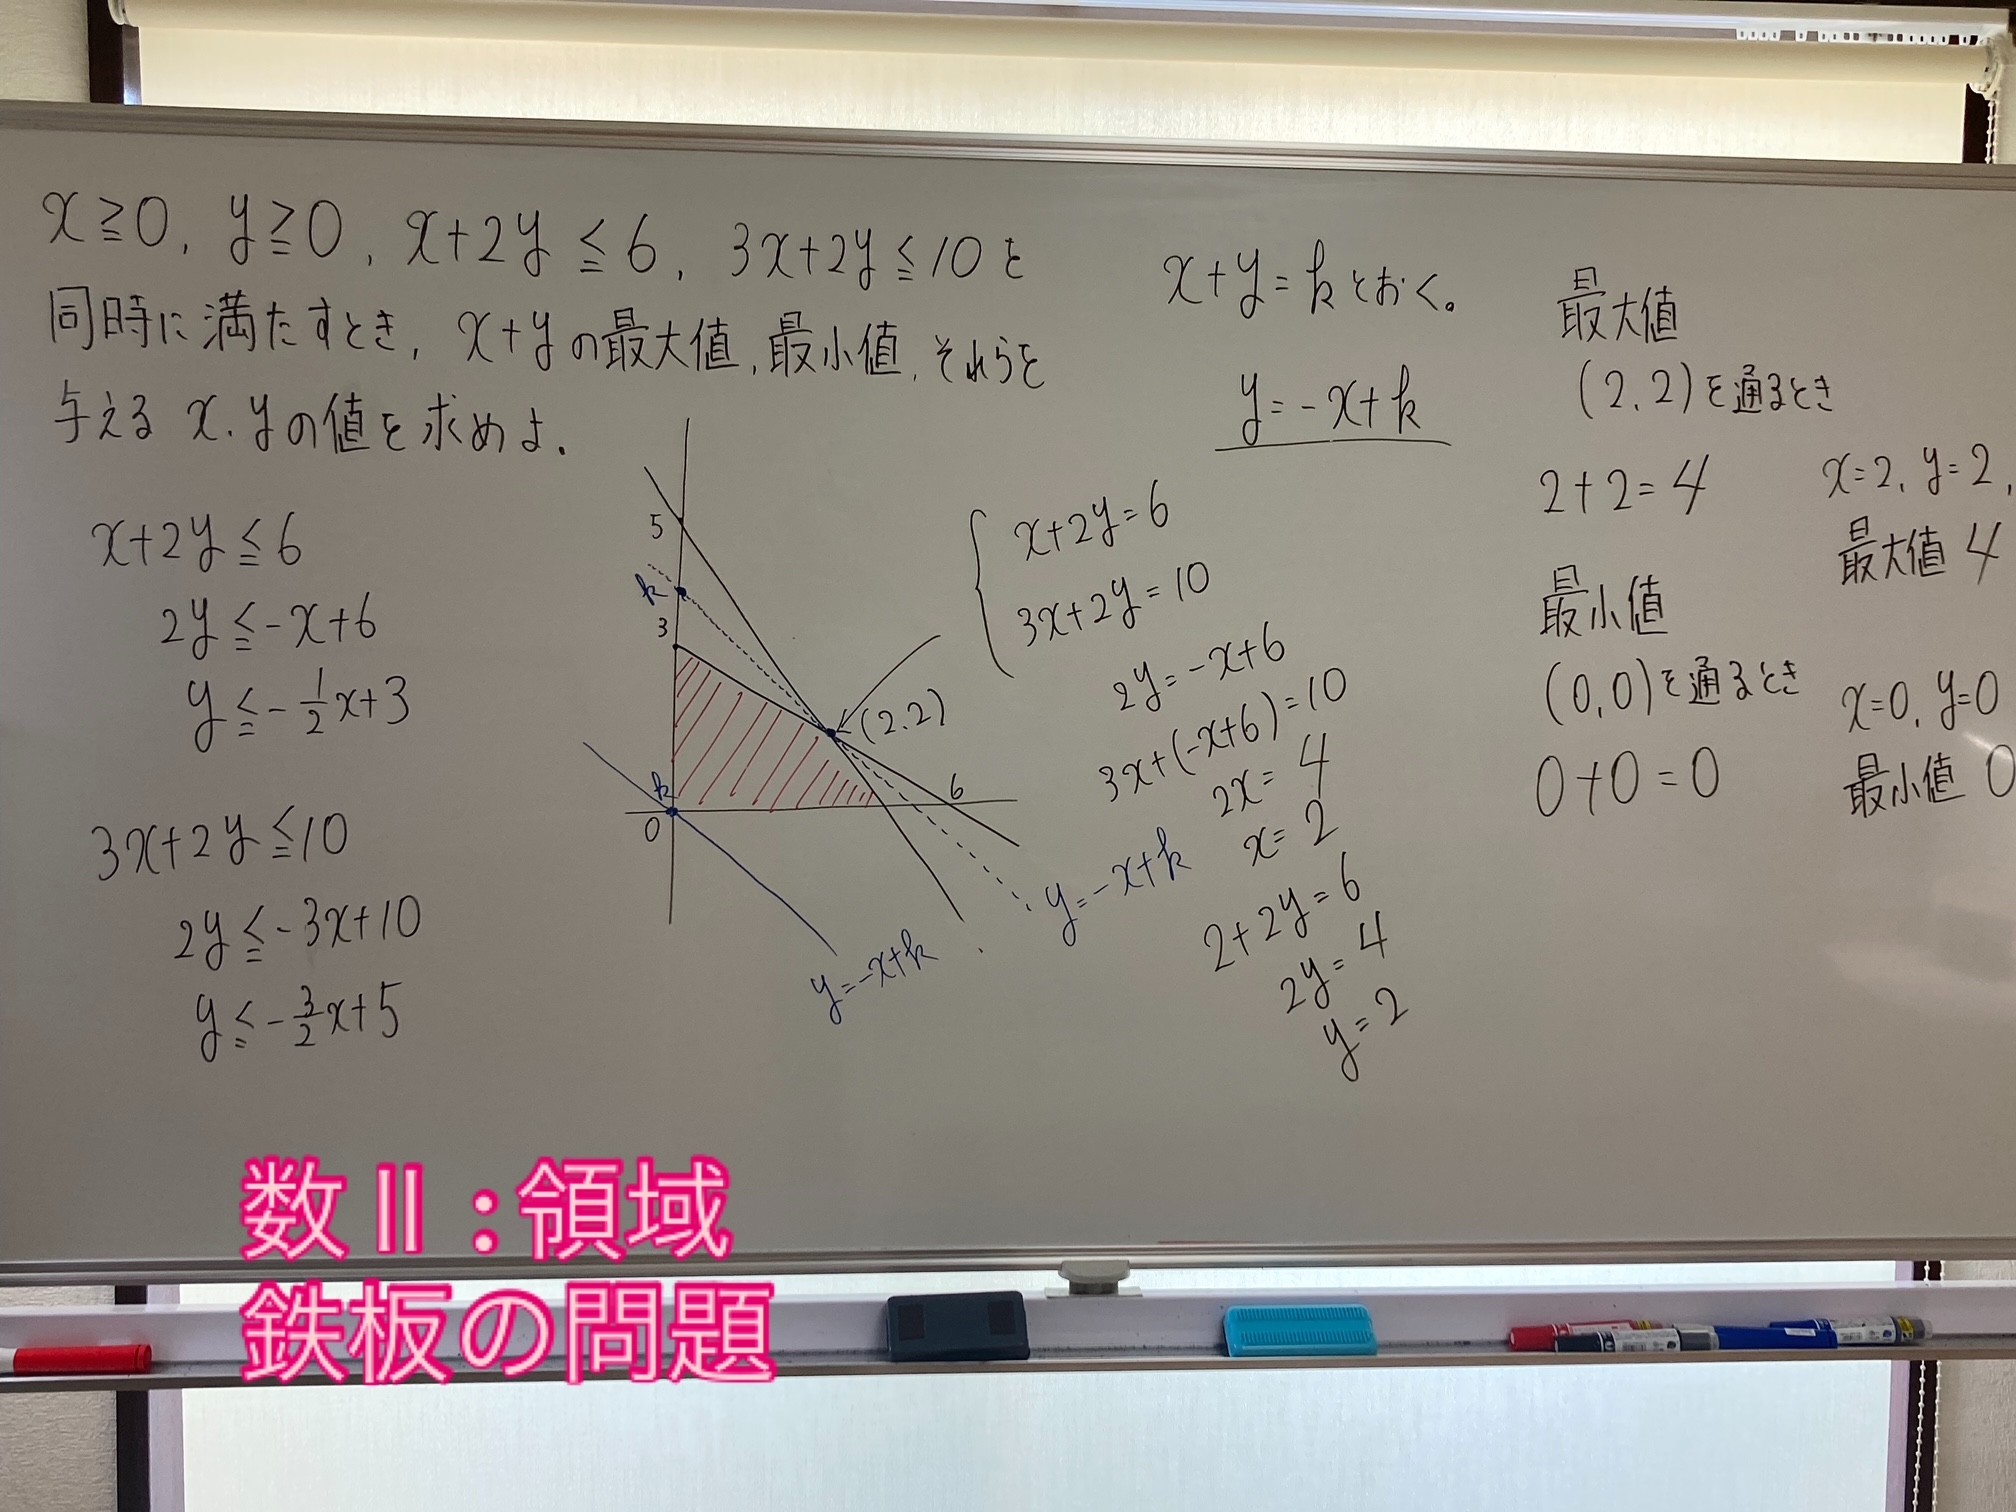 x≧0, y≧0, x+2y≦6, 3x+2y≦10を
同時に満たすとき, x+yの最大値, 最小値, それらを
与えるx, yの値を求めよ.
x+2y≦6
2y≦-x+6
y≦-1/2x+3
3x+2y≦10
2y≦-3x+10
y≦-3/2x+5
5
k
3
k
0
6
(2.2)
y=-x+k
y=-x+k
x+y=kとおく。
y=-x+k
x+2y=6
3x+2y=10
2y=-x+6
3x+(-x+6)=10
2x=4
x=2
2+2y=6
2y=4
y=2
最大値
(2,2)を通るとき
2+2=4
x=2, y=2,
最大値 4
最小値
(0,0)を通るとき
0+0=0
x=0, y=0
最小値 0
数Ⅱ:領域
鉄板の問題